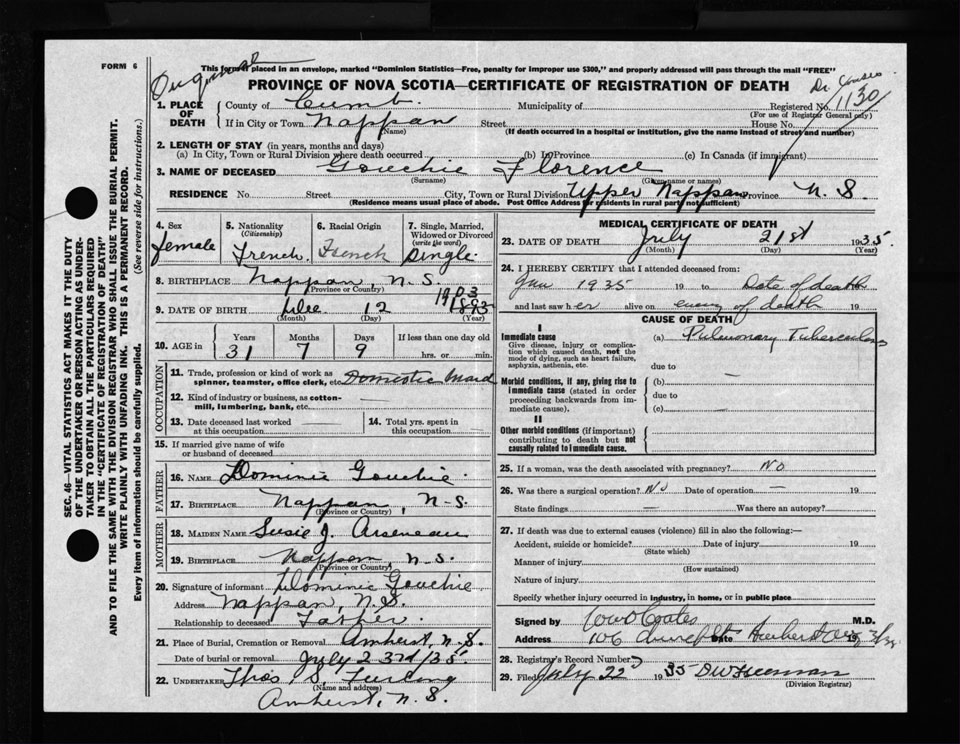 FORM 6
Original
This form if placed in an envelope, marked "Dominion Statistics—Free, penalty for improper use $300," and properly addressed will pass through the mail "FREE"
PROVINCE OF NOVA SCOTIA—CERTIFICATE OF REGISTRATION OF DEATH
1. PLACE OF DEATH
County of Cumb. Municipality of Registered No. 1130
(For use of Registrar General only)
If in City or Town Nappan Street House No.
(Name) (If death occurred in a hospital or institution, give the name instead of street and number)
2. LENGTH OF STAY (in years, months and days)
(a) In City, Town or Rural Division where death occurred (b) In Province (c) In Canada (if immigrant)
3. NAME OF DECEASED Gouchie Florence
(Surname) (Given name or names)
RESIDENCE No. Street City, Town or Rural Division Upper Nappan Province N. S.
(Residence means usual place of abode. Post Office Address for residents in rural part not sufficient)
4. Sex female
5. Nationality (Citizenship) French
6. Racial Origin French
7. Single, Married, Widowed or Divorced (write the word) Single
8. BIRTHPLACE Nappan N. S.
(Province or Country)
9. DATE OF BIRTH Dec 12 1903 1893
(Month) (Day) (Year)
10. AGE in
Years Months Days If less than one day old
31 7 9 hrs. or min.
OCCUPATION
11. Trade, profession or kind of work as spinner, teamster, office clerk, etc. Domestic Maid
12. Kind of industry or business, as cotton-mill, lumbering, bank, etc.
13. Date deceased last worked at this occupation —
14. Total yrs. spent in this occupation —
15. If married give name of wife or husband of deceased
FATHER
16. NAME Dominic Gouchie
17. BIRTHPLACE Nappan, N-S.
(Province or Country)
MOTHER
18. MAIDEN NAME Susie J. Arseneau
19. BIRTHPLACE Nappan N-S.
(Province or Country)
20. Signature of informant Dominic Gouchie
Address Nappan, N.S.
Relationship to deceased Father
21. Place of Burial, Cremation or Removal Amherst, N.S.
Date of burial or removal July 23rd/35
22. UNDERTAKER Thos S. Furlong
(Name and address)
Amherst, N. S.
MEDICAL CERTIFICATE OF DEATH
23. DATE OF DEATH July 21st 1935.
(Month) (Day)
24. I HEREBY CERTIFY that I attended deceased from:
Jan 1935 19 to Date of death
and last saw her alive on of death 19
CAUSE OF DEATH
I
Immediate cause
Give disease, injury or complication which caused death, not the mode of dying, such as heart failure, asphyxia, asthenia, etc.
(a) Pulmonary Tuberculosis
due to
Morbid conditions, if any, giving rise to immediate cause (stated in order proceeding backwards from immediate cause).
(b) —
due to
(c) —
II
Other morbid conditions (if important) contributing to death but not causally related to immediate cause.
25. If a woman, was the death associated with pregnancy? No
26. Was there a surgical operation? No Date of operation — 19
State findings — Was there an autopsy?
27. If death was due to external causes (violence) fill in also the following:—
Accident, suicide or homicide? Date of injury 19
(State which)
Manner of injury
(How sustained)
Nature of injury
Specify whether injury occurred in industry, in home, or in public place
Signed by M.D.
Address 106 Church St Date Amherst
28. Registrar's Record Number
29. Filed July 22 1935
(Division Registrar)
SEC. 46—VITAL STATISTICS ACT MAKES IT THE DUTY
OF THE UNDERTAKER OR PERSON ACTING AS UNDER-
TAKER TO OBTAIN ALL THE PARTICULARS REQUIRED
IN THE "CERTIFICATE OF REGISTRATION OF DEATH"
AND TO FILE THE SAME WITH THE DIVISION REGISTRAR WHO SHALL ISSUE THE BURIAL PERMIT.
WRITE PLAINLY WITH UNFADING INK. THIS IS A PERMANENT RECORD.
Every item of information should be carefully supplied. (See reverse side for instructions.)